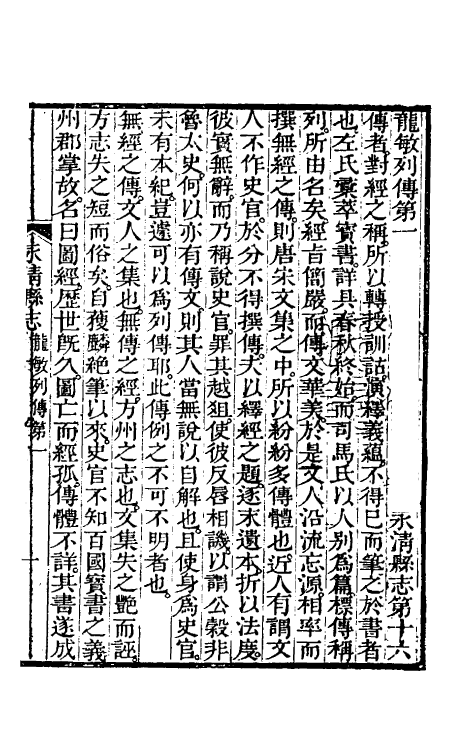 龍敏列傳第一　永清縣志第十六
傳者對經之稱。所以轉授訓詁。演釋義蘊。不得已而筆之於書者
也。左氏彙萃寶書。詳具春秋終始。而司馬氏以人別爲篇。標傳稱
列。所由名矣。經旨簡嚴。而傳文華美。於是文人沿流忘源。相率而
撰無經之傳。則唐宋文集之中。所以紛紛多傳體也。近人有謂文
人不作史官。於分不得撰傳。夫以繹經之題。逐末遺本。折以法度。
彼實無辭。而乃稱說史官。罪其越俎。使彼反唇相譏。以謂公穀非
魯太史。何以亦有傳文。則其人當無說以自解也。且使身爲史官。
未有本紀。豈遽可以爲列傳耶。此傳例之不可不明者也。
無經之傳。文人之集也。無傳之經。方州之志也。文集失之艷而誣。
方志失之短而俗矣。自獲麟絶筆以來。史官不知百國寶書之義。
州郡掌故。名曰圖經。歷世旣久。圖亡而經孤。傳體不詳。其書遂成
永清縣志　龍敏列傳第一　一